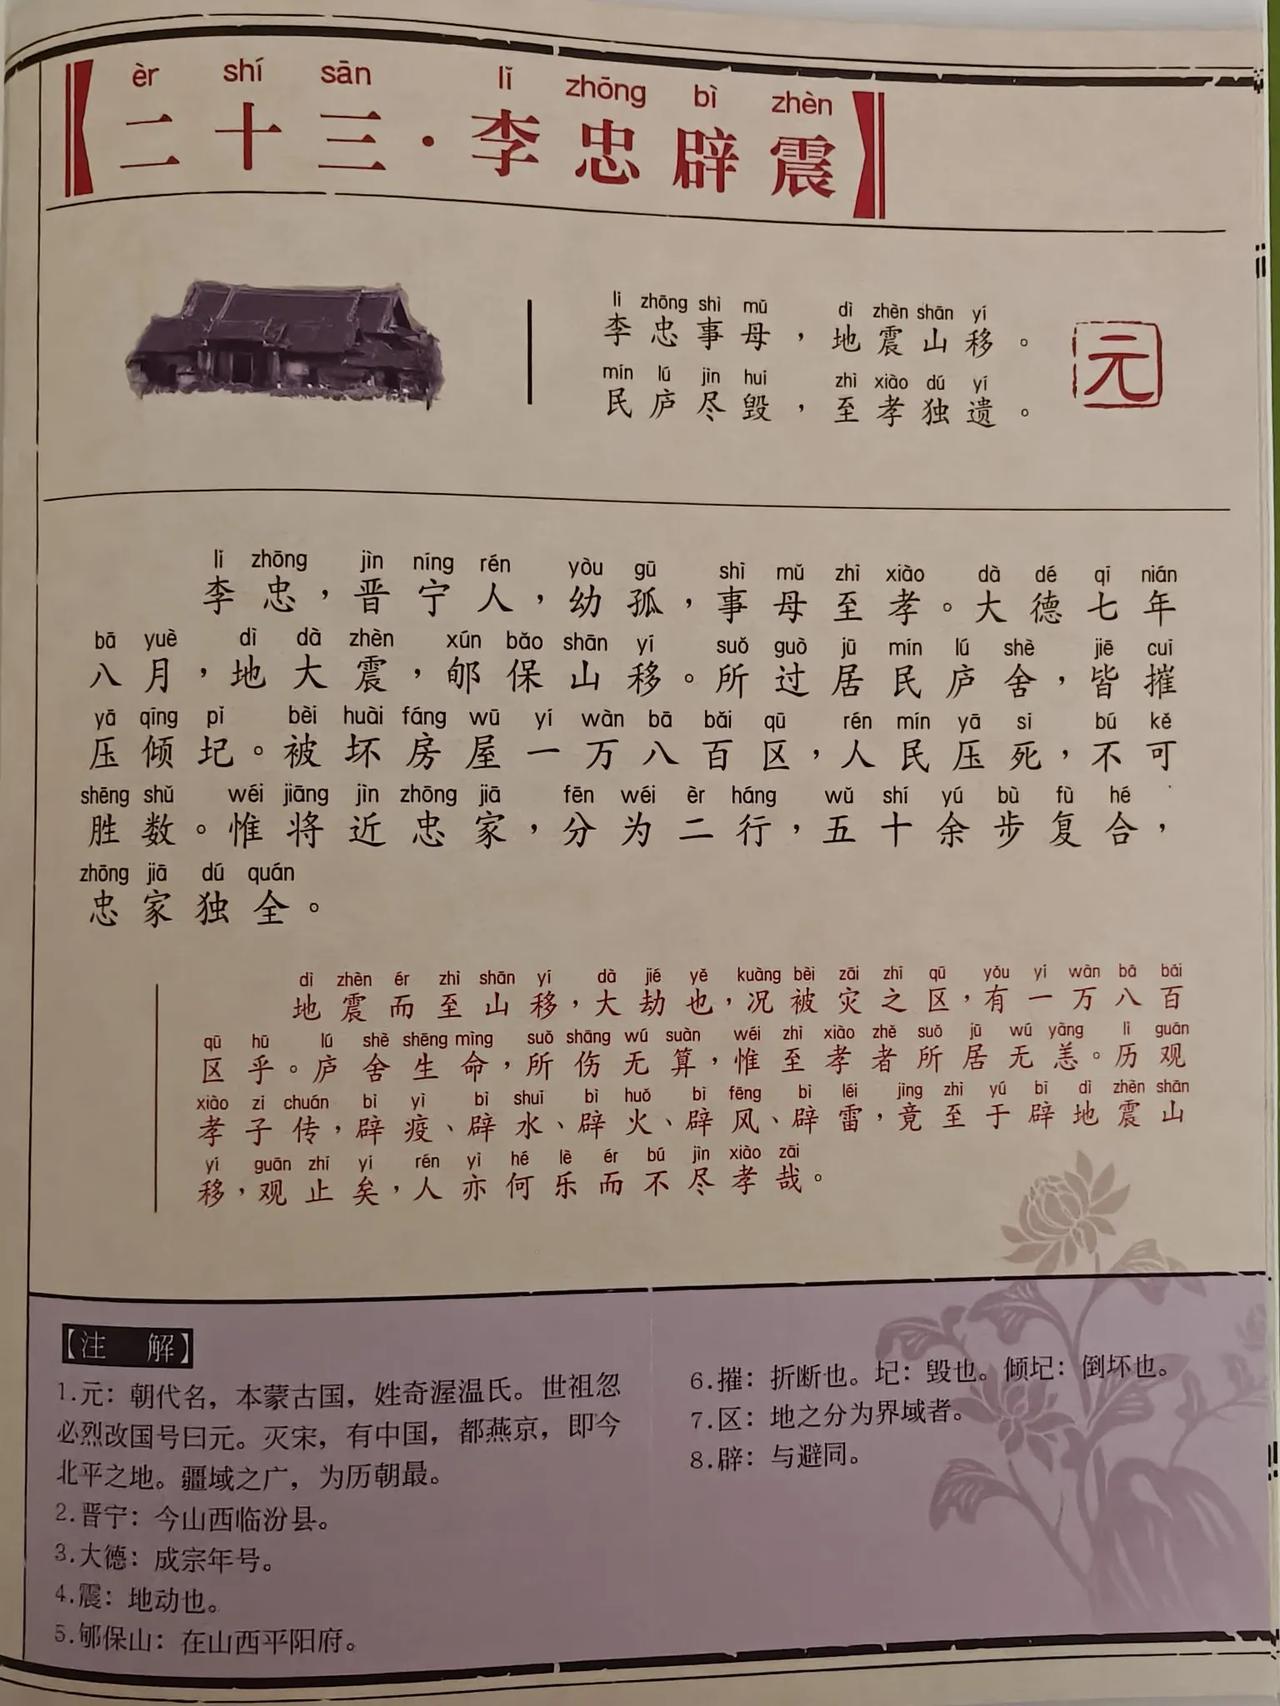 èr shí sān lǐ zhōng bì zhèn
【二十三·李忠辟震】
lǐ zhōng shì mǔ dì zhèn shān yí
李忠事母，地震山移。
mín lú jìn huǐ zhì xiào dú yí
民庐尽毁，至孝独遗。
元
lǐ zhōng jìn níng rén yòu gū shì mǔ zhì xiào dà dé qī nián
李忠，晋宁人，幼孤，事母至孝。大德七年
bā yuè dì dà zhèn xún bǎo shān yí suǒ guò jū mín lú shè jiē cuī
八月，地大震，郇保山移。所过居民庐舍，皆摧
yā qīng pǐ bèi huài fáng wū yí wàn bā bǎi qū rén mín yā sǐ bú kě
压倾圮。被坏房屋一万八百区，人民压死，不可
shēng shǔ wéi jiāng jìn zhōng jiā fēn wéi èr háng wǔ shí yú bù fù hé
胜数。惟将近忠家，分为二行，五十余步复合，
zhōng jiā dú quán
忠家独全。
dì zhèn ér zhì shān yí dà jié yě kuàng bèi zāi zhī qū yǒu yí wàn bā bǎi
地震而至山移，大劫也，况被灾之区，有一万八百
qū hū lú shè shēng mìng suǒ shāng wú suàn wéi zhì xiào zhě suǒ jū wú yàng lì guān
区乎。庐舍生命，所伤无算，惟至孝者所居无恙。历观
xiào zǐ chuán bì yì bì shuǐ bì huǒ bì fēng bì léi jìng zhì yú bì dì zhèn shān
孝子传，辟疫、辟水、辟火、辟风、辟雷，竟至于辟地震山
yí guān zhǐ yǐ rén yì hé lè ér bú jìn xiào zāi
移，观止矣，人亦何乐而不尽孝哉。
【注 解】
1.元：朝代名，本蒙古国，姓奇渥温氏。世祖忽
必烈改国号曰元。灭宋，有中国，都燕京，即今
北平之地。疆域之广，为历朝最。
2.晋宁：今山西临汾县。
3.大德：成宗年号。
4.震：地动也。
5.郇保山：在山西平阳府。
6.摧：折断也。圮：毁也。倾圮：倒坏也。
7.区：地之分为界域者。
8.辟：与避同。